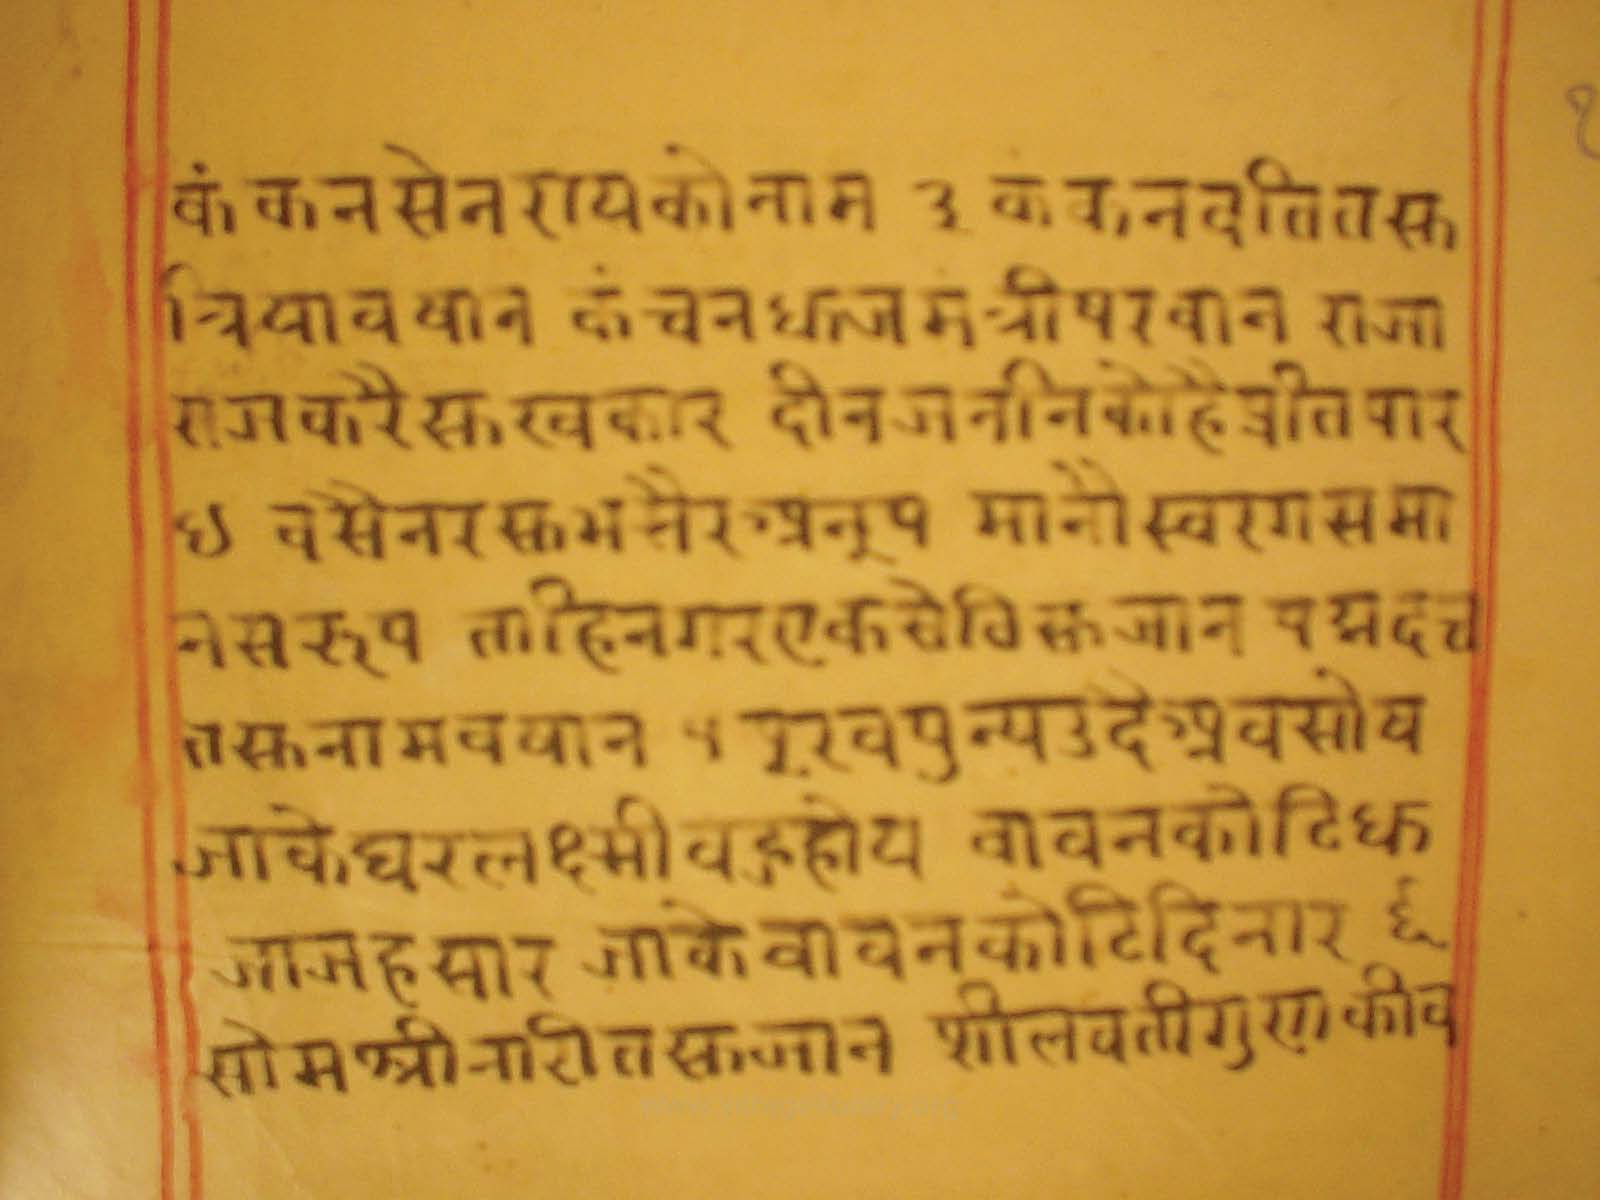 कंकनसेनरायकोनाम ३ कंकनदत्तितसु
त्रियावषान कंचनधुजमंत्रीपरवान राजा
राजकरैसुखकार दीनजननिकोहैप्रतिपार
४ वसैनरसुभनैरअनूप मानौस्वरगसमा
नसरूप ताहिनगरएकसेठिसुजान पद्मदत्त
तसुनामवषान ५ पूरवपुन्यउदैअवसोय
जाकेघरलक्ष्मीवहुहोय वावनकोटिधु
जाजहसार जाकेवावनकोटिदिनार ६
सोमश्रीनारीतसुजान शीलवतीगुणकीव